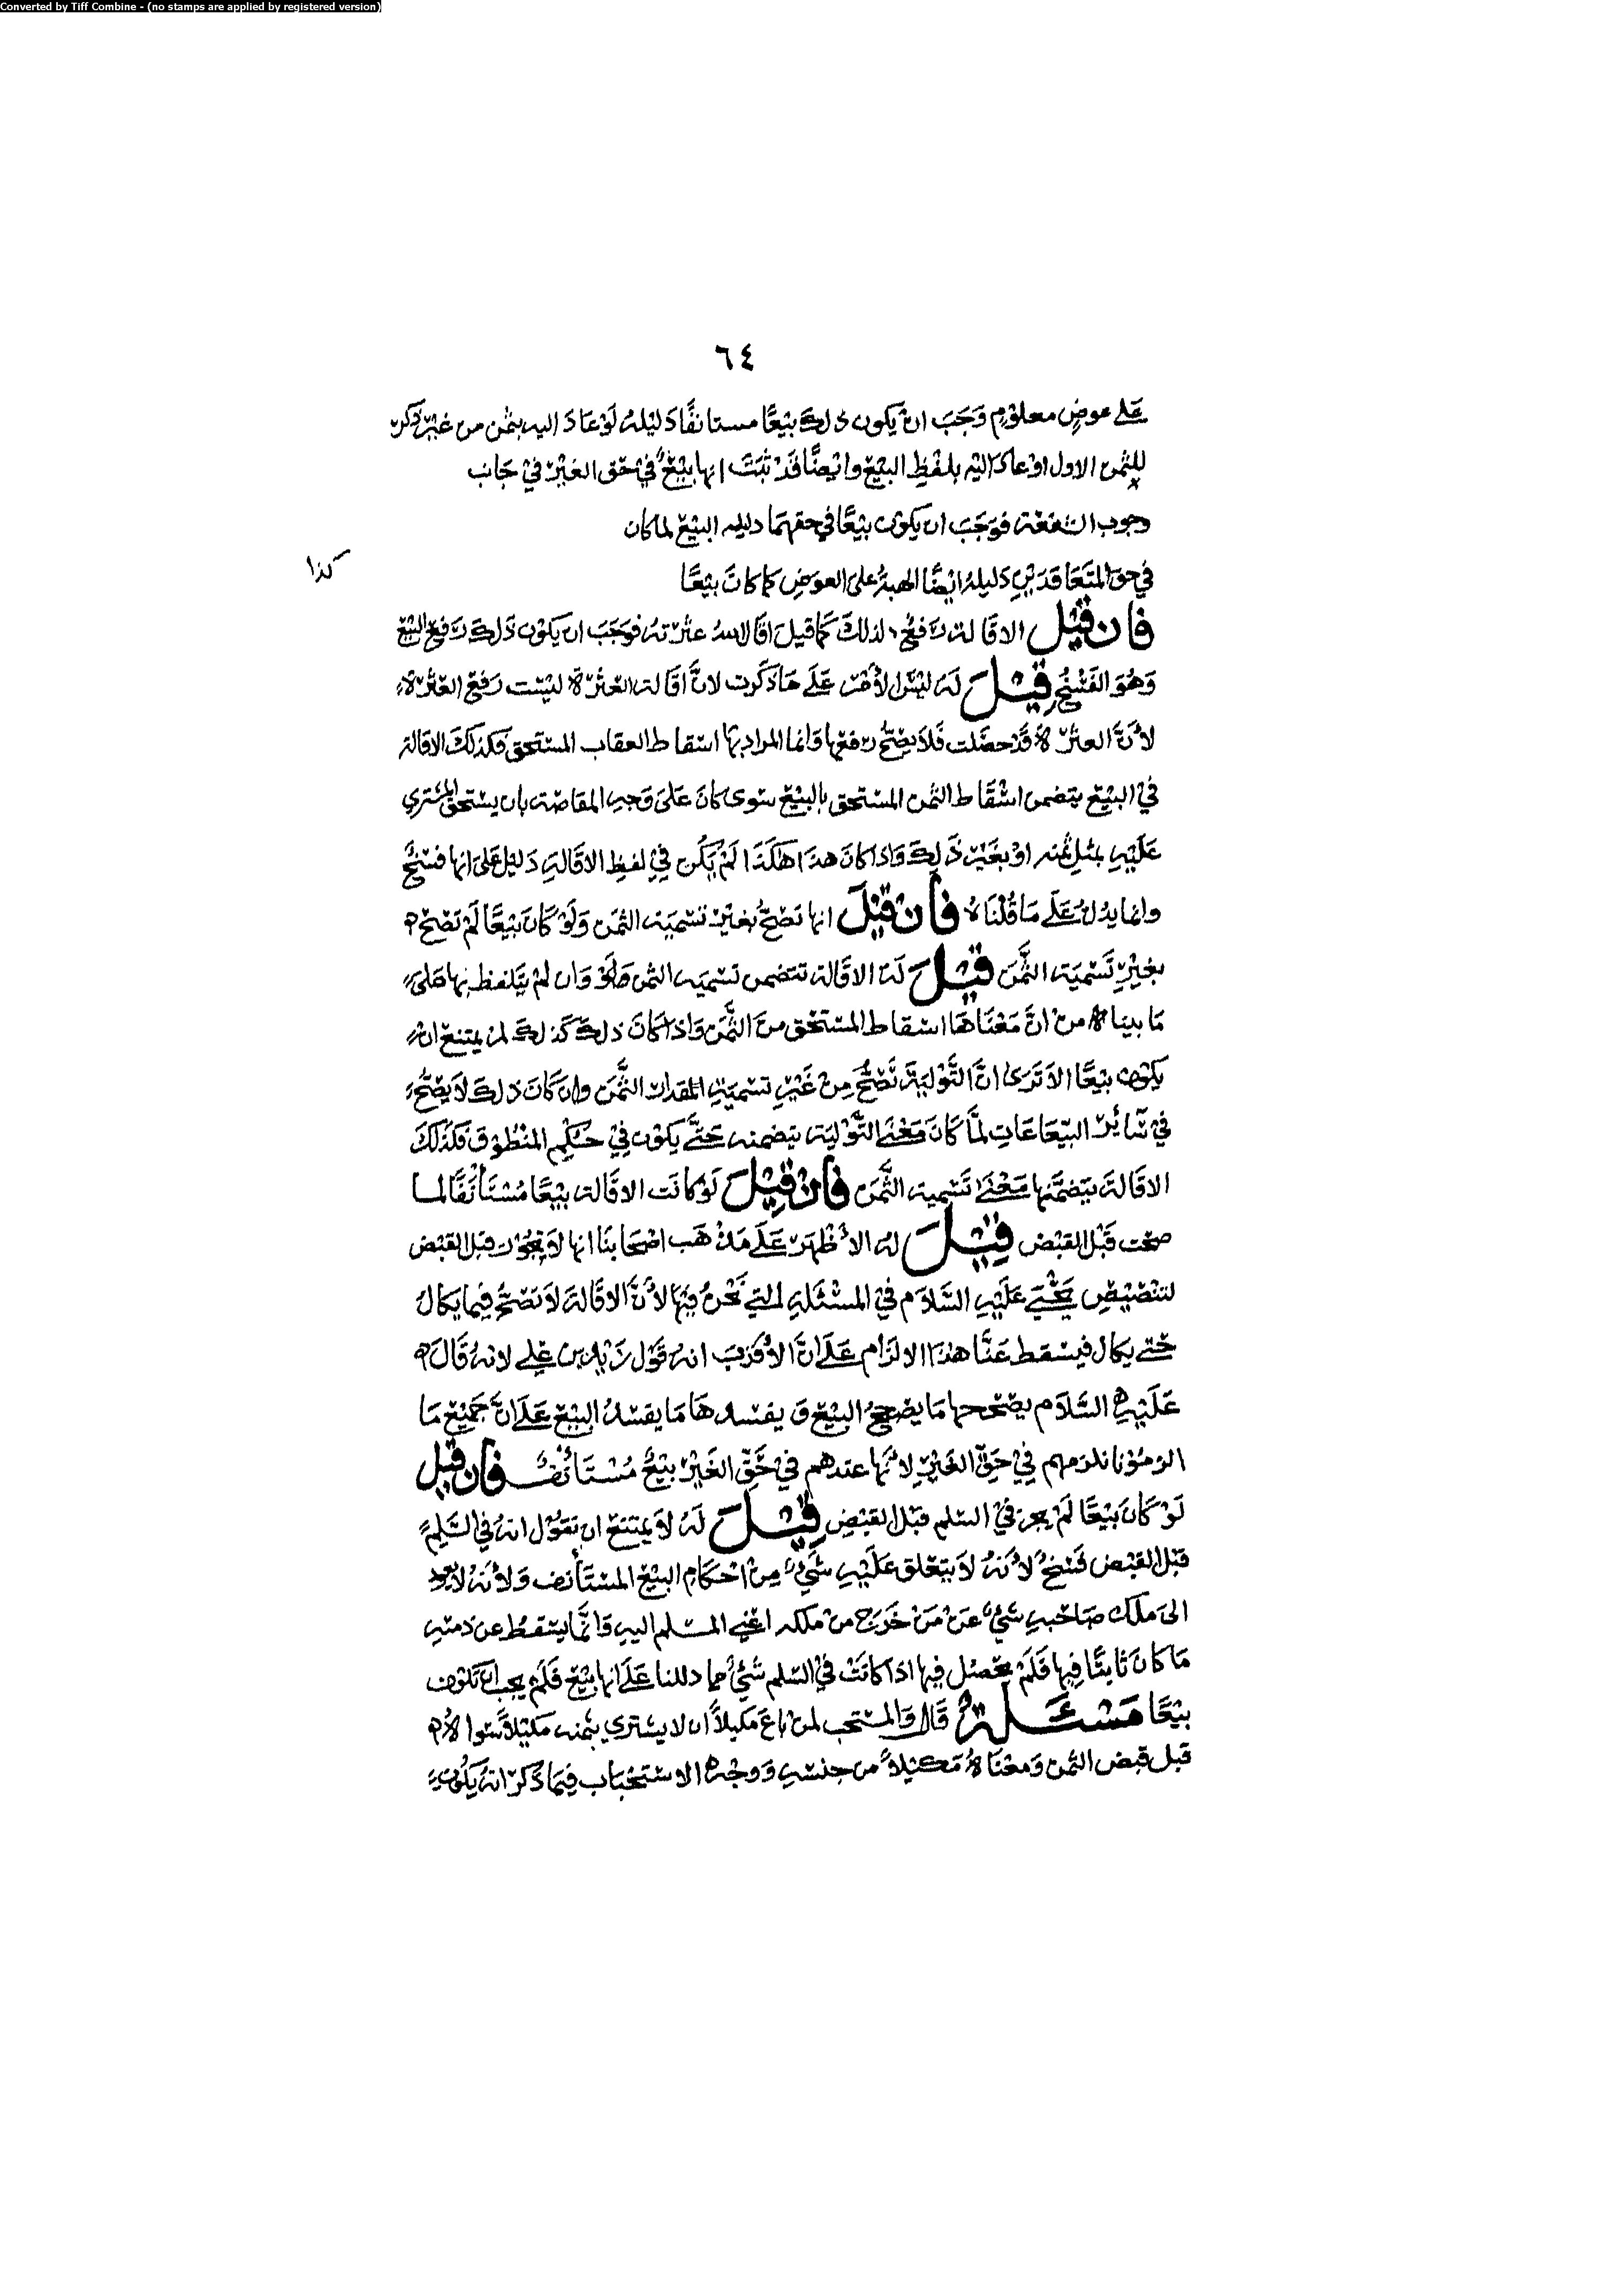 Converted by Tiff Combine - (no stamps are applied by registered version)
٦٤
على عوض معلوم وجب ان يكون ذلك بيعًا مستانفًا دليله لو عاد اليه بثمن من غير ذكر
للثمن الاول او عاد اليه بلفظ البيع وايضًا قد ثبت انها بيع في حق الغير في جاب
وجوب الشفعة فوجب ان يكون بيعًا في حقهما دليله البيع لما كان
في حق المتعاقدين دليله ايضًا الهبة على العوض كما كان بيعًا
كذا
فان قيل الاقالة رفع لذلك كما قيل اقال الله عثرته فوجب ان يكون ذلك رفع البيع
وهو الفسخ قيل له ليس الأمر على ما ذكرت لان اقالة العثرة ليست رفع العثرة
لأن العثرة قد حصلت فلا يصح رفعها وانما المراد بها اسقاط العقاب المستحق فكذلك الاقالة
في البيع يتضمن اسقاط الثمن المستحق بالبيع سوى كان على وجه المقاصة بان يستحق المشتري
عليه بمثل ثمنه او بغير ذلك واذا كان هذا هكذا لم يكن في لفظ الاقالة دليل على انها فسخ
وانما يدل على ما قلناه فان قيل انها تصح بغير تسمية الثمن ولو كان بيعًا لم تصح
بغير تسمية الثمن قيل له الاقالة تتضمن تسمية الثمن وان لم يتلفظ بها على
ما بيناه من ان معناها اسقاط المستحق من الثمن واذا كان ذلك كذلك لم يمتنع ان
يكون بيعًا الا ترى ان التولية تصح من غير تسمية المقدار الثمن وان كان ذلك لا يصح
في سائر البياعات لما كان معنى التولية يتضمنه حتى يكون في حكم المنطوق فكذلك
الاقالة يتضمنها معنى تسمية الثمن فان قيل لو كانت الاقالة بيعًا مستأنفًا لما
صحت قبل القبض قيل له الأظهر على مذهب اصحابنا انها لا تجوز قبل القبض
لتنصيص يحيى عليه السلام في المسئلة التي نحن فيها لأن الاقالة لا تصح فيما يكال
حتى يكال فيسقط عنا هذا الالزام على ان الأقرب انه قول زيد بن علي لانه قال
عليه السلام يصححها ما يصحح البيع و يفسدها ما يفسد البيع على ان جميع ما
الزمونا يلزمهم في حق الغير لأنها عندهم في حق الغير بيع مستأنف فان قيل
لو كان بيعًا لم يجز في السلم قبل القبض قيل له لا يمتنع ان نقول انه في السلم
قبل القبض فسخ لأنه لا يتعلق عليه شيء من احكام البيع المستأنف ولأنه لا يعود
الى ملك صاحبه شيء عن من خرج من ملكه اعني المسلم اليه وانما يسقط عن ذمته
ما كان ثابتًا فيها فلم يحصل فيها اذا كانت في السلم شيء مما دللنا على انها بيع فلم يجب ان تكون
بيعًا مسئلة قال والمستحب لمن باع مكيلاً ان لا يشتري بثمنه مكيلاً سواه
قبل قبض الثمن ومعناه مكيلاً من جنسه ووجه الاستحباب فيما ذكر انه يكون